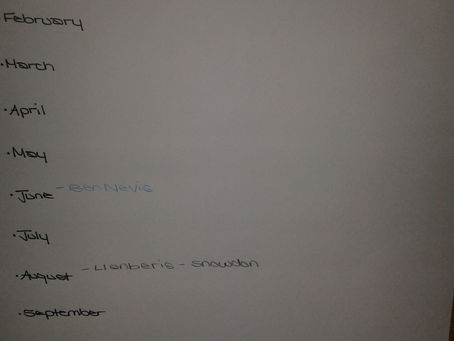 February
·March
·April
·May
·June - Ben Nevis
·July
·August - Llanberis - snowdon
·September